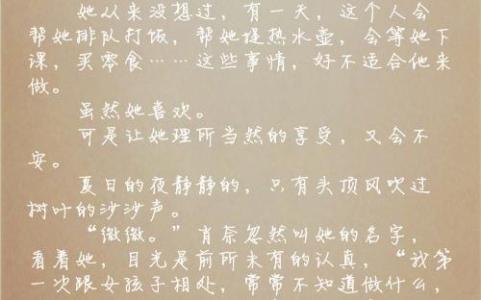 她从来没想过，有一天，这个人会
帮她排队打饭，帮她提热水壶，会等她下
课，买零食……这些事情，好不适合他来
做。
虽然她喜欢。
可是让她理所当然的享受，又会不
安。
夏日的夜静静的，只有头顶风吹过
树叶的沙沙声。
“微微。”肖奈忽然叫她的名字，
看着她，目光是前所未有的认真，“我第
一次跟女孩子相处，常常不知道做什么，